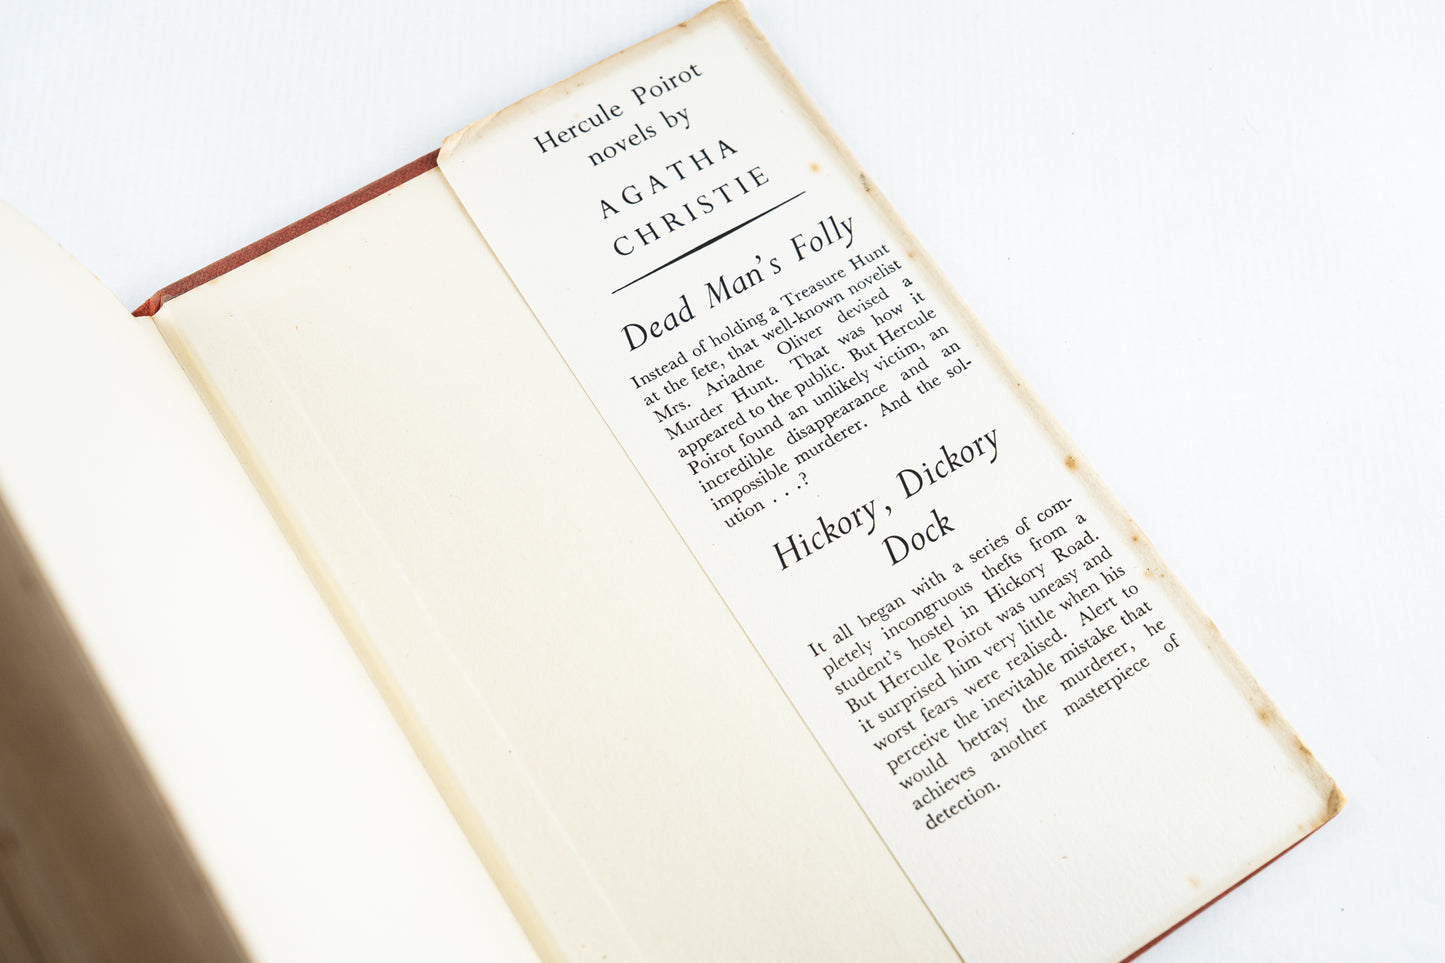 Hercule Poirot
novels by
AGATHA
CHRISTIE
Dead Man's Folly
Instead of holding a Treasure Hunt
at the fete, that well-known novelist
Mrs. Ariadne Oliver devised a
Murder Hunt. That was how it
appeared to the public. But Hercule
Poirot found an unlikely victim, an
incredible disappearance and an
impossible murderer. And the sol-
ution . . .?
Hickory, Dickory
Dock
It all began with a series of com-
pletely incongruous thefts from a
student's hostel in Hickory Road.
But Hercule Poirot was uneasy and
it surprised him very little when his
worst fears were realised. Alert to
perceive the inevitable mistake that
would betray the murderer, he
achieves another masterpiece of
detection.